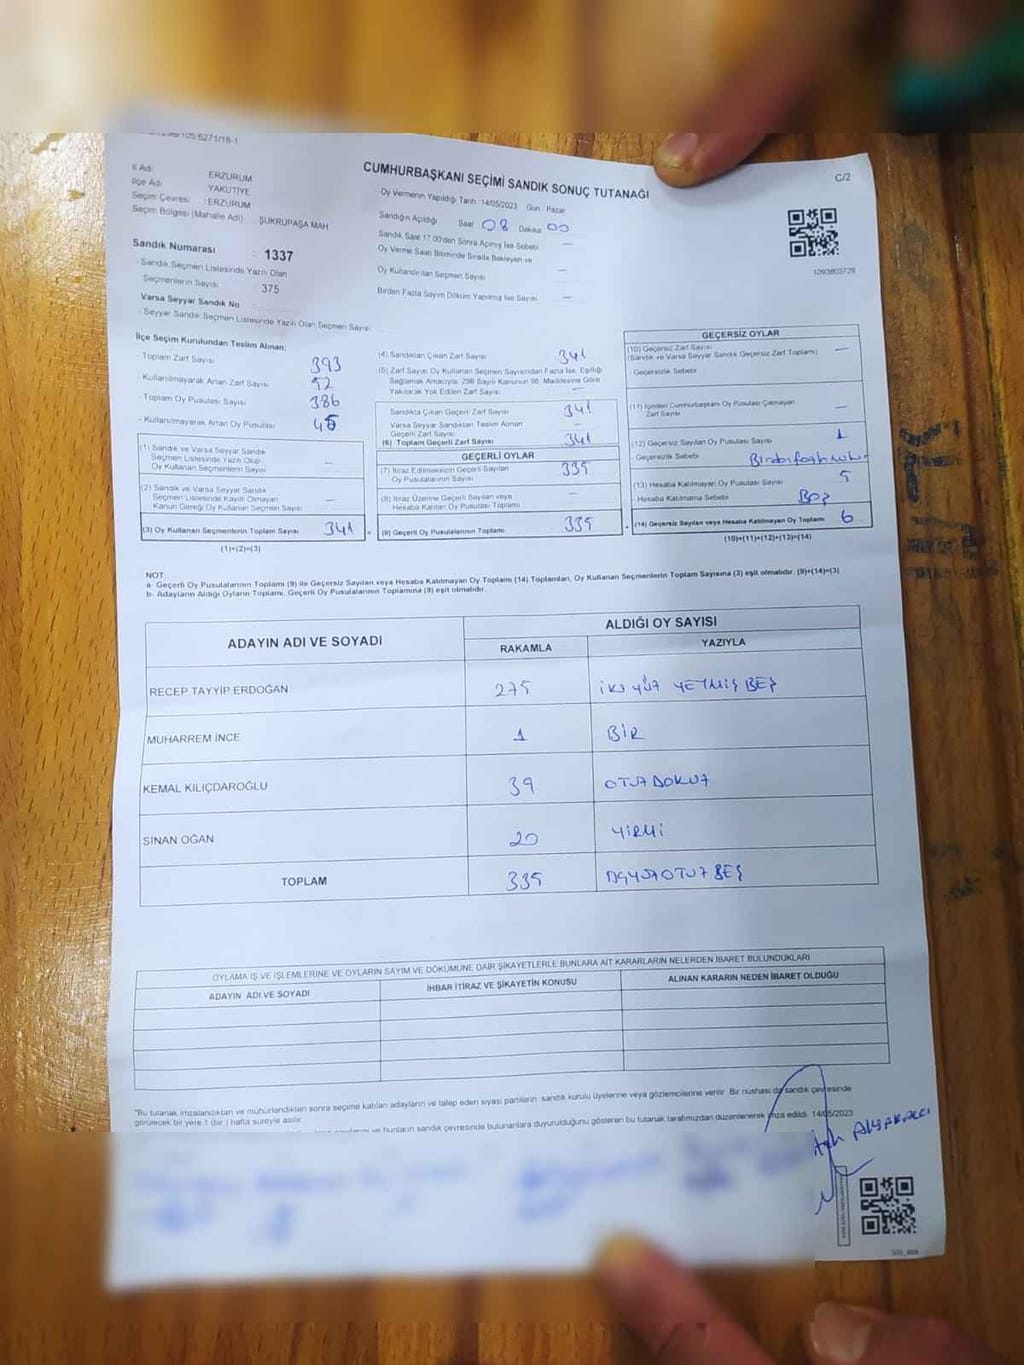 CUMHURBAŞKANI SEÇİMİ SANDIK SONUÇ TUTANAĞI
C/2
İl Adı : ERZURUM
İlçe Adı : YAKUTİYE
Seçim Çevresi : ERZURUM
Seçim Bölgesi (Mahalle Adı) ŞUKRUPAŞA MAH
Sandık Numarası : 1337
- Sandık Seçmen Listesinde Yazılı Olan
Seçmenlerin Sayısı 375
Varsa Seyyar Sandık No
- Seyyar Sandık Seçmen Listesinde Yazılı Olan Seçmen Sayısı:
Oy Vermenin Yapıldığı Tarih :14/05/2023 Gün : Pazar
Sandığın Açıldığı Saat 08 Dakika 00
Sandık Saat 17:00'den Sonra Açılmış İse Sebebi —
Oy Verme Saati Bitiminde Sırada Bekleyen ve
Oy Kullandırılan Seçmen Sayısı —
Birden Fazla Sayım Döküm Yapılmış İse Sayısı —
1093803728
İlçe Seçim Kurulundan Teslim Alınan;
- Toplam Zarf Sayısı 393
- Kullanılmayarak Artan Zarf Sayısı 52
- Toplam Oy Pusulası Sayısı 386
- Kullanılmayarak Artan Oy Pusulası 45
(1) Sandık ve Varsa Seyyar Sandık
Seçmen Listesinde Yazılı Olup
Oy Kullanan Seçmenlerin Sayısı —
(2) Sandık ve Varsa Seyyar Sandık
Seçmen Listesinde Kayıtlı Olmayan
Kanun Gereği Oy Kullanan Seçmen Sayısı —
(3) Oy Kullanan Seçmenlerin Toplam Sayısı 341 =
(1)+(2)=(3)
(4) Sandıktan Çıkan Zarf Sayısı 341
(5) Zarf Sayısı Oy Kullanan Seçmen Sayısından Fazla İse, Eşitliği
Sağlamak Amacıyla, 298 Sayılı Kanunun 98. Maddesine Göre
Yakılarak Yok Edilen Zarf Sayısı —
Sandıkta Çıkan Geçerli Zarf Sayısı 341
Varsa Seyyar Sandıktan Teslim Alınan
Geçerli Zarf Sayısı —
(6) Toplam Geçerli Zarf Sayısı 341
GEÇERLİ OYLAR
(7) İtiraz Edilmeksizin Geçerli Sayılan
Oy Pusulalarının Sayısı 335
(8) İtiraz Üzerine Geçerli Sayılan veya
Hesaba Katılan Oy Pusulası Toplamı —
(9) Geçerli Oy Pusulalarının Toplamı 335 +
GEÇERSİZ OYLAR
(10) Geçersiz Zarf Sayısı
(Sandık ve Varsa Seyyar Sandık Geçersiz Zarf Toplamı) —
- Geçersizlik Sebebi
(11) İçinden Cumhurbaşkanı Oy Pusulası Çıkmayan
Zarf Sayısı —
(12) Geçersiz Sayılan Oy Pusulası Sayısı 1
- Geçersizlik Sebebi
(13) Hesaba Katılmayan Oy Pusulası Sayısı 5
Hesaba Katılmama Sebebi Boş
(14) Geçersiz Sayılan veya Hesaba Katılmayan Oy Toplamı 6
(10)+(11)+(12)+(13)=(14)
NOT:
a- Geçerli Oy Pusulalarının Toplamı (9) ile Geçersiz Sayılan veya Hesaba Katılmayan Oy Toplamı (14) Toplamları, Oy Kullanan Seçmenlerin Toplam Sayısına (3) eşit olmalıdır. (9)+(14)=(3)
b- Adayların Aldığı Oyların Toplamı, Geçerli Oy Pusulalarının Toplamına (9) eşit olmalıdır.
ADAYIN ADI VE SOYADI ALDIĞI OY SAYISI
RAKAMLA YAZIYLA
RECEP TAYYİP ERDOĞAN 275 İKİ YÜZ YETMİŞ BEŞ
MUHARREM İNCE 1 BİR
KEMAL KILIÇDAROĞLU 39 OTUZ DOKUZ
SİNAN OĞAN 20 YİRMİ
TOPLAM 335 ÜÇ YÜZ OTUZ BEŞ
OYLAMA İŞ VE İŞLEMLERİNE VE OYLARIN SAYIM VE DÖKÜMÜNE DAİR ŞİKAYETLERLE BUNLARA AİT KARARLARIN NELERDEN İBARET BULUNDUKLARI
ADAYIN ADI VE SOYADI İHBAR İTİRAZ VE ŞİKAYETİN KONUSU ALINAN KARARIN NEDEN İBARET OLDUĞU
"Bu tutanak imzalandıktan ve mühürlendikten sonra seçime katılan adayların ve talep eden siyasi partilerin sandık kurulu üyelerine veya gözlemcilerine verilir. Bir nüshası da sandık çevresinde
görülecek bir yere 1 (bir ) hafta süreyle asılır.
ve bunların sandık çevresinde bulunanlara duyurulduğunu gösteren bu tutanak tarafımızdan düzenlenerek imza edildi. 14/05/2023